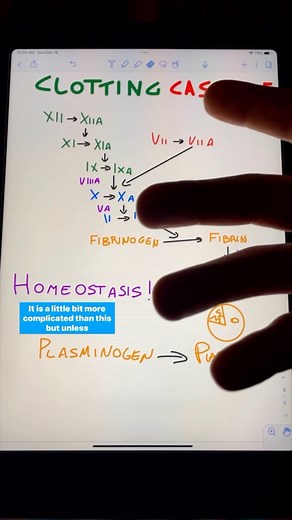 CLOTTING CAS
XII → XIIA
XI → XIA
VII → VIIA
IX → IXA
VIIIA
X → XA
VA
II →
FIBRINOGEN → FIBRIN
HOMEOSTASIS!
It is a little bit more
complicated than this
but unless
PLASMINOGEN → PL